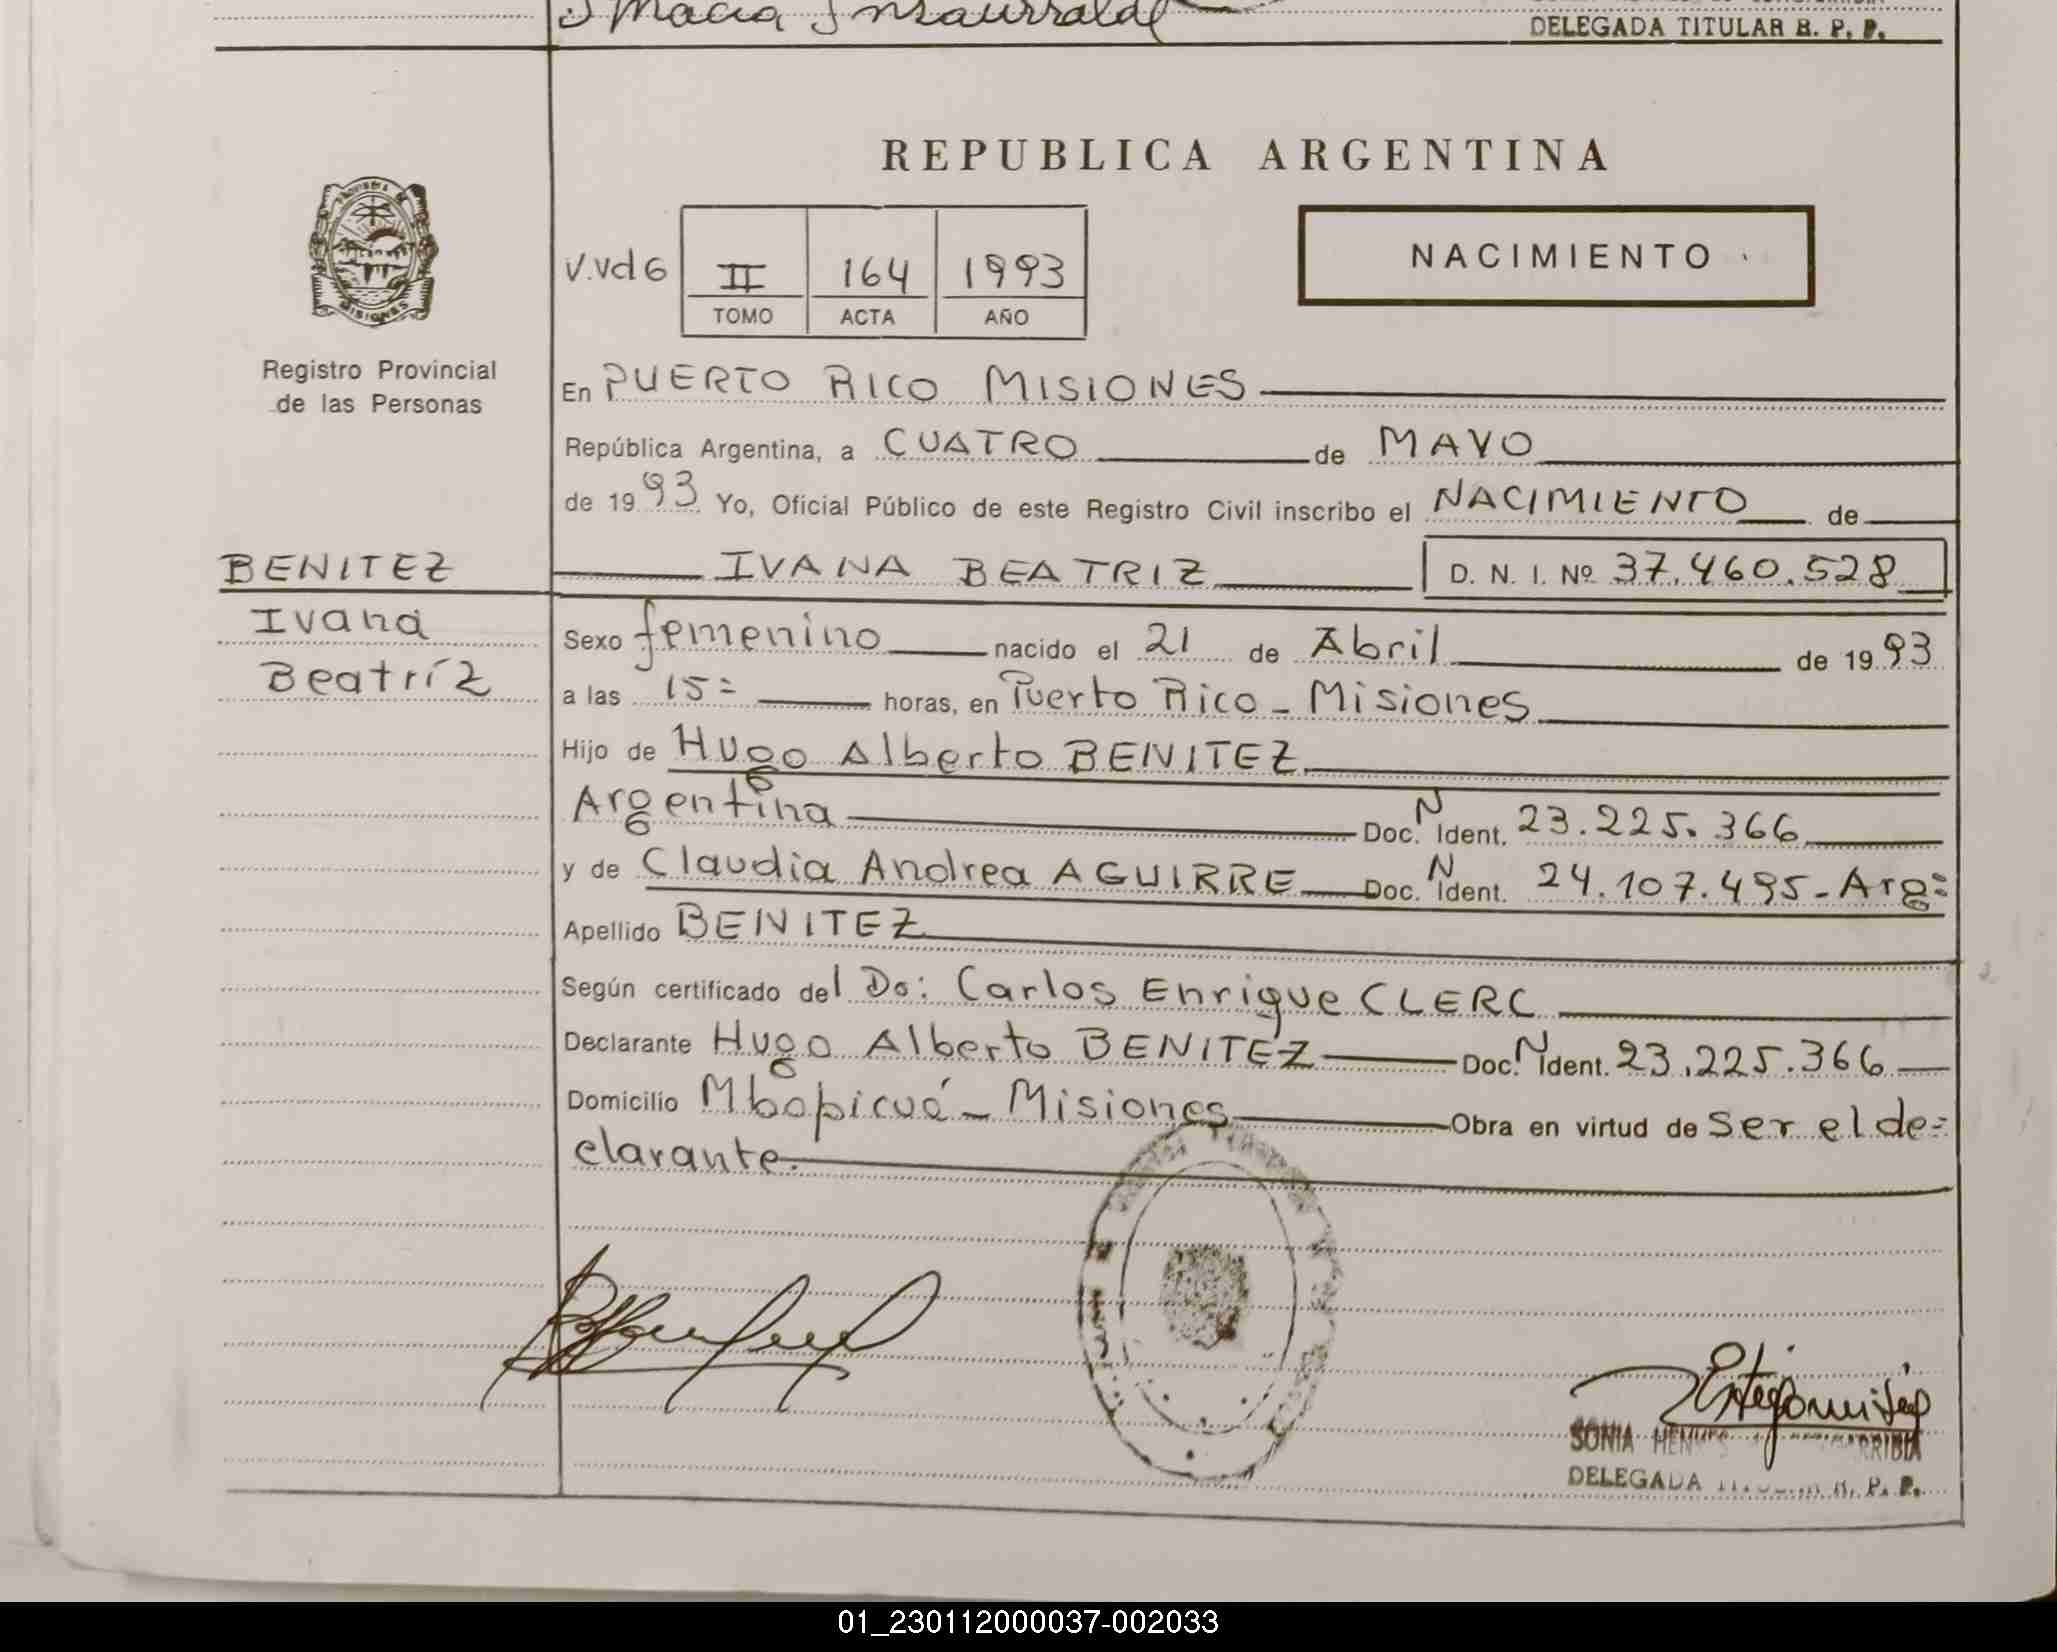 DELEGADA TITULAR B. P. P.
REPUBLICA ARGENTINA
PROVINCIA
MISIONES
Registro Provincial
de las Personas
V.Vd6 II 164 1993
TOMO ACTA AÑO
NACIMIENTO
En PUERTO RICO MISIONES
República Argentina, a CUATRO de MAYO
de 1993 Yo, Oficial Público de este Registro Civil inscribo el NACIMIENTO de
BENITEZ
Ivana
Beatríz
IVANA BEATRIZ D. N. I. Nº 37.460.528
Sexo femenino nacido el 21 de Abril de 1993
a las 15= horas, en Puerto Rico - Misiones
Hijo de Hugo Alberto BENITEZ
Argentina Doc. N Ident. 23.225.366
y de Claudia Andrea AGUIRRE Doc. N Ident. 24.107.495 - Arg=
Apellido BENITEZ
Según certificado del Do: Carlos Enrique CLERC
Declarante Hugo Alberto BENITEZ Doc. N Ident. 23.225.366
Domicilio Mbopicuá - Misiones Obra en virtud de ser el de=
clarante.
SONIA
DELEGADA B. P. P.
01_230112000037-002033